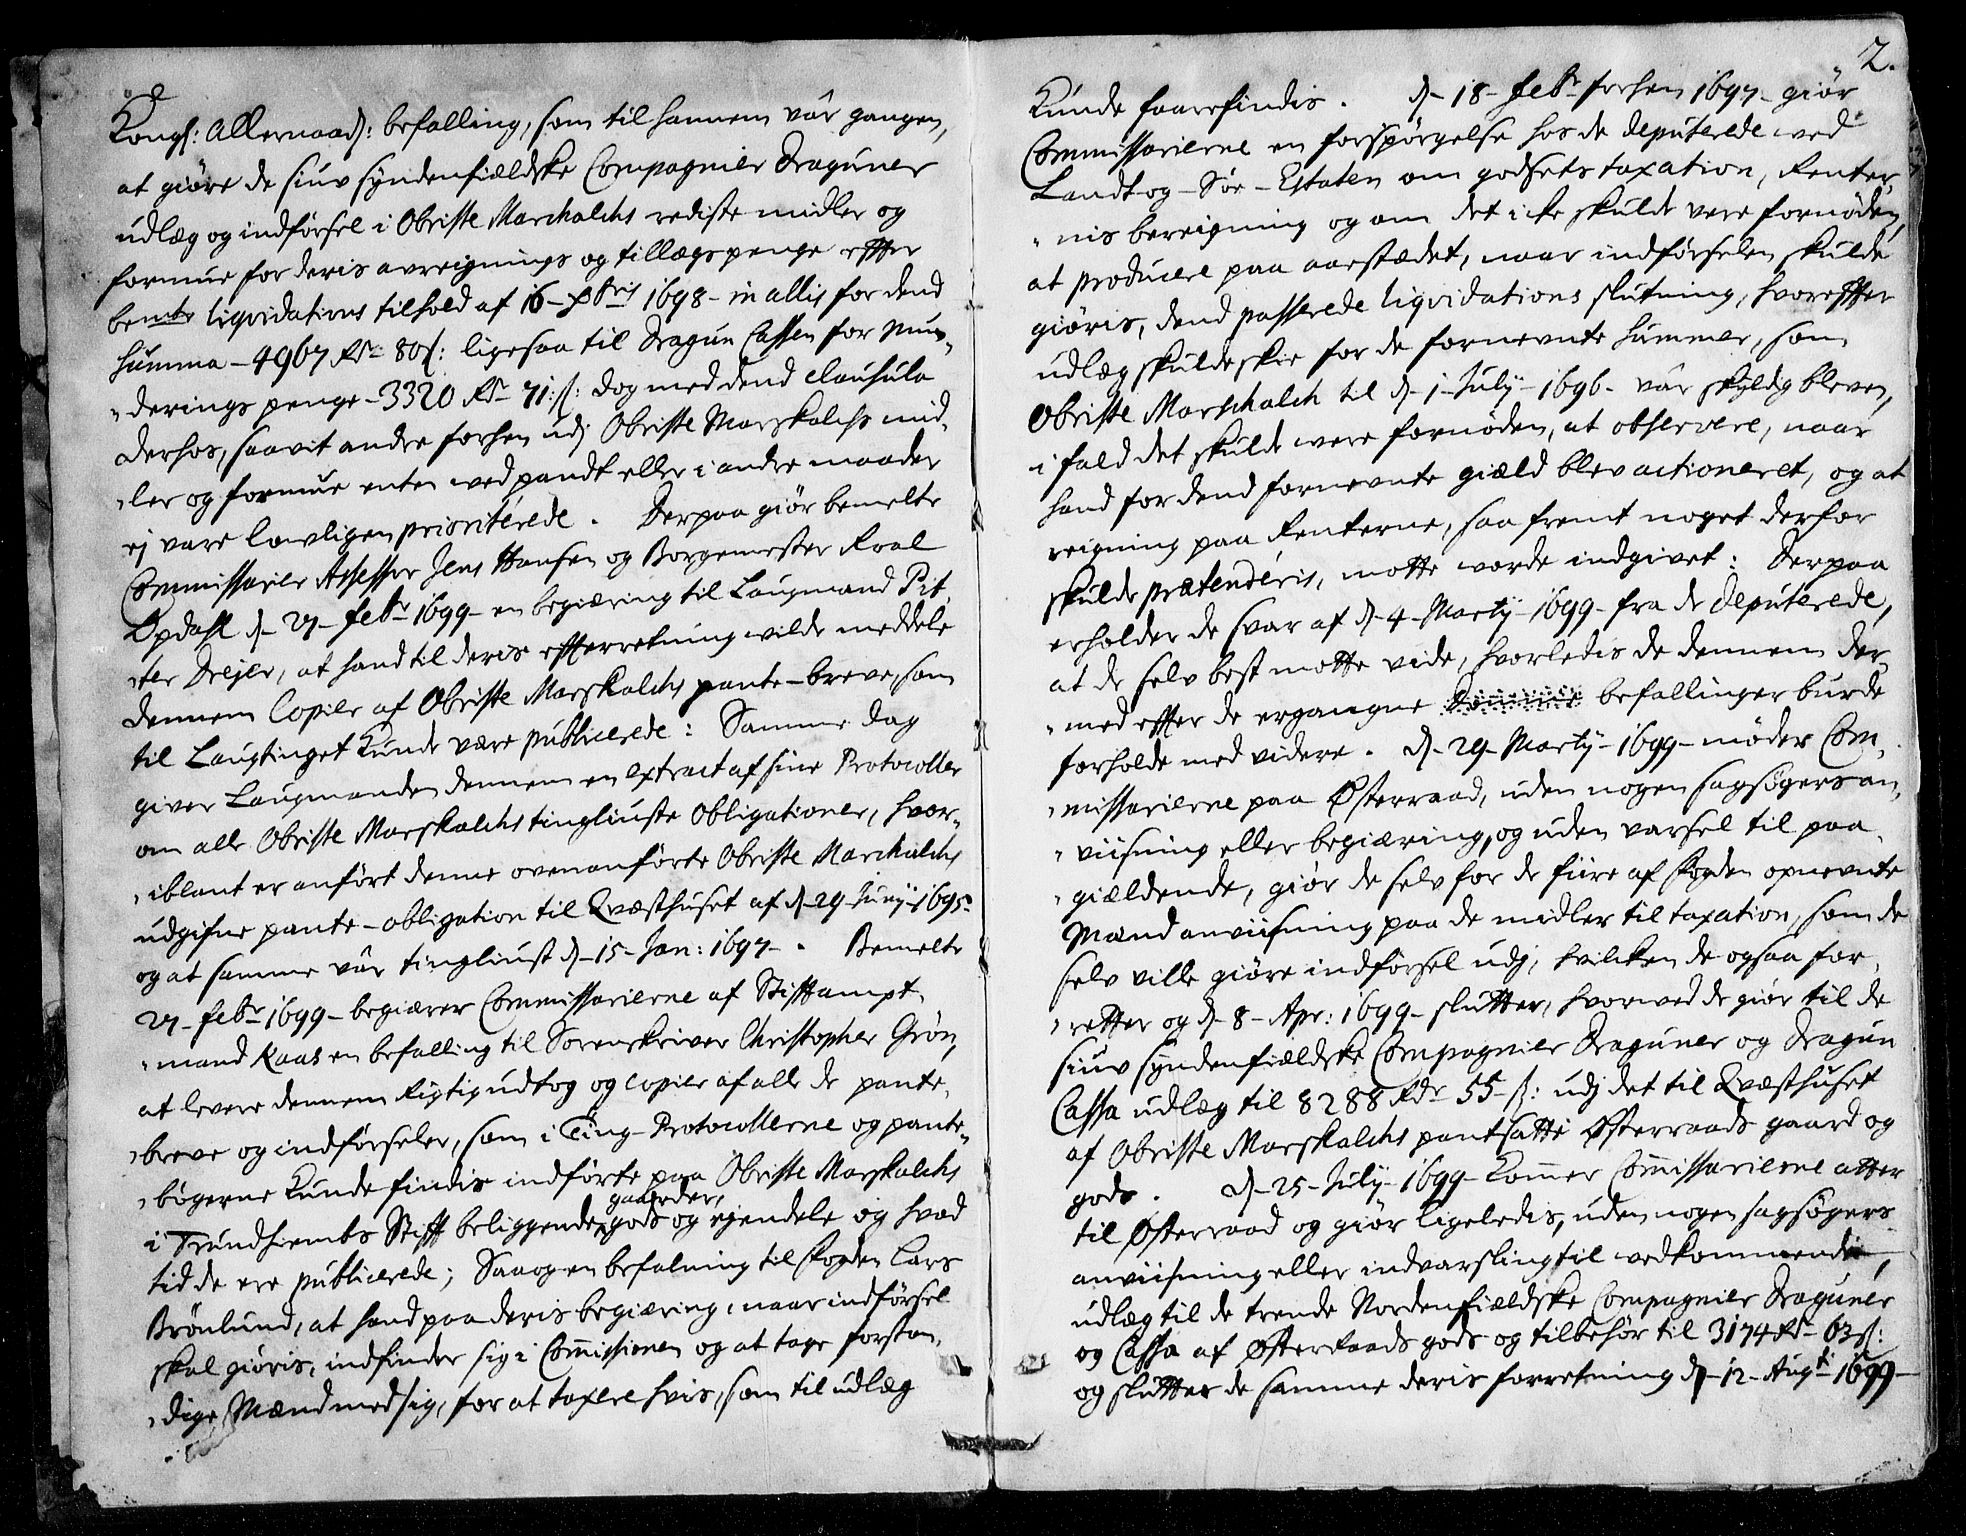 Kongl: Allernaad: befalling, som til hannem vâr gangen,
at giöre de siuv syndenfieldske Compagnier Draguner
udlæg og indförsel i Obriste Marchalchs rediste midler og
formue for deris avreignings og tillægs penge effter
bemte liqvidations tilhold af 16 Xbris 1698 in allis for dend
summa 4967 Rdr 80 s: ligesaa til Dragun Cassen for Mun-
derings penge 3320 Rdr 71: s: dog med dend clausula
derhos, saavit andre forhen udj Obriste Marskalchs mid-
ler og formue enten ved pandt eller i andre maader
ej vare lowligen prioriterede. Derpaa giör bemelte
Commissarier Assessor Jens Hansen og Borgemester Roal
Opdahl d. 27 febr 1699 en begiæring til Laugmand Pit-
ter Drejer, at hand til deris efferretning wilde meddele
dennem Copier af Obriste Marskalchs pante-breve, som
til Laugtinget kunde være publicerede: Samme dag
giver Laugmanden dennem en extract af sine Protocoller
om alle Obriste Marskalchs tingliuste Obligationer, hvor-
iblant er anfört denne ovenanförte Obriste Marchalchs
udgifne pante-obligation til Qvæsthuset af d. 29 Junij 1695
og at samme vâr tingliust d. 15 Jan: 1697. Bemelte
27 febr 1699 begiærer Commissarierne af Stifftampt-
mand Kaas en befalling til Sorenskriver Christopher Grön,
at levere dennem Rigtig udtog og copier af alle de pante-
breve og indförseler, som i Ting-Protocollerne og pante-
bögerne kunde findis indförte paa Obriste Marskalchs
i Trundhiembs Stifft beliggende gaarder, gods og ejendele og hvad
tid de ere publicerede; Saa og en befalning til fogden Lars
Brönlund, at hand paa deris begiæring, naar indförsel
skal giöris, indfinder sig i Commissionen og at tage forstan-
dige Mænd med sig, for at taxere hvis, som til udlæg
2.
kunde faarefindis. d. 18 febr forhen 1697 giör
Commissarierne en forspörgelse hos de deputerede ved
Landt og Söe-Estaten om godsets taxation, Renter-
nis bereigning og om det icke skulde vere fornöden,
at producere paa aarstædet, naar indförselen skulde
giöris, dend passerede liqvidations slutning, hvoreffter
udlæg skulde skee for de fornevnte Summer, som
Obriste Marschalch til d. 1 July 1696 vâr skyldig bleven,
i fald det skulde were fornöden, at observere, naar
hand for dend fornevnte gield blev actioneret, og at
reigning paa Renterne, saa fremt noget derfor
skulde prætenderis, motte worde indgivet: Derpaa
erholder de svar af d. 4 Martij 1699 fra de deputerede,
at de selv best motte vide, hvorledis de dennem der-
med effter de ergangne befallinger burde
forholde med videre. d. 29 Martij 1699 möder Com-
missarierne paa Østerraad, uden nogen sagsögers an-
viisning eller begiæring, og uden varsel til paa-
gieldende, giör de selv for de fiire af fogden opnevnte
Mænd anviisning paa de midler til taxation, som de
selv ville giöre indförsel udj, hvilken de ogsaa for-
retter og d. 8 Apr: 1699 slutter, hvorved de giör til de
siuv syndenfieldske Compagnier Draguner og Dragun
Cassa udlæg til 8288 Rdr 55 s: udj det til Qvæsthuset
af Obriste Marskalchs pantsatte Østerraads gaard og
gods. d. 25 July 1699 kommer Commissarierne atter
til Østerraad og giör ligeledis, uden nogen sagsögers
anviisning eller indvarsling til vedkommende,
udlæg til de trende Nordenfieldske Compagnier Draguner
og Cassa af Østerraads gods og tilbehör til 3174 Rdr 63 s:
og slutter de samme deris forretning d. 12 Augti 1699